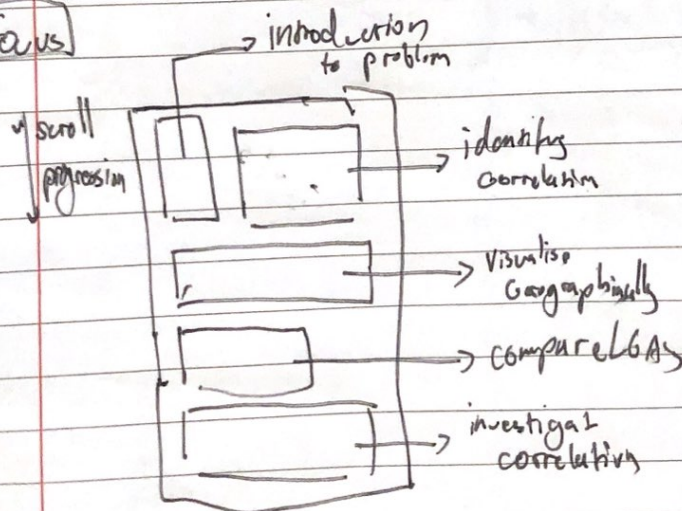 ocus
introduction
to problem
scroll
progression
identify
correlation
Visualise
Geographically
compare LGAs
investigat
correlation